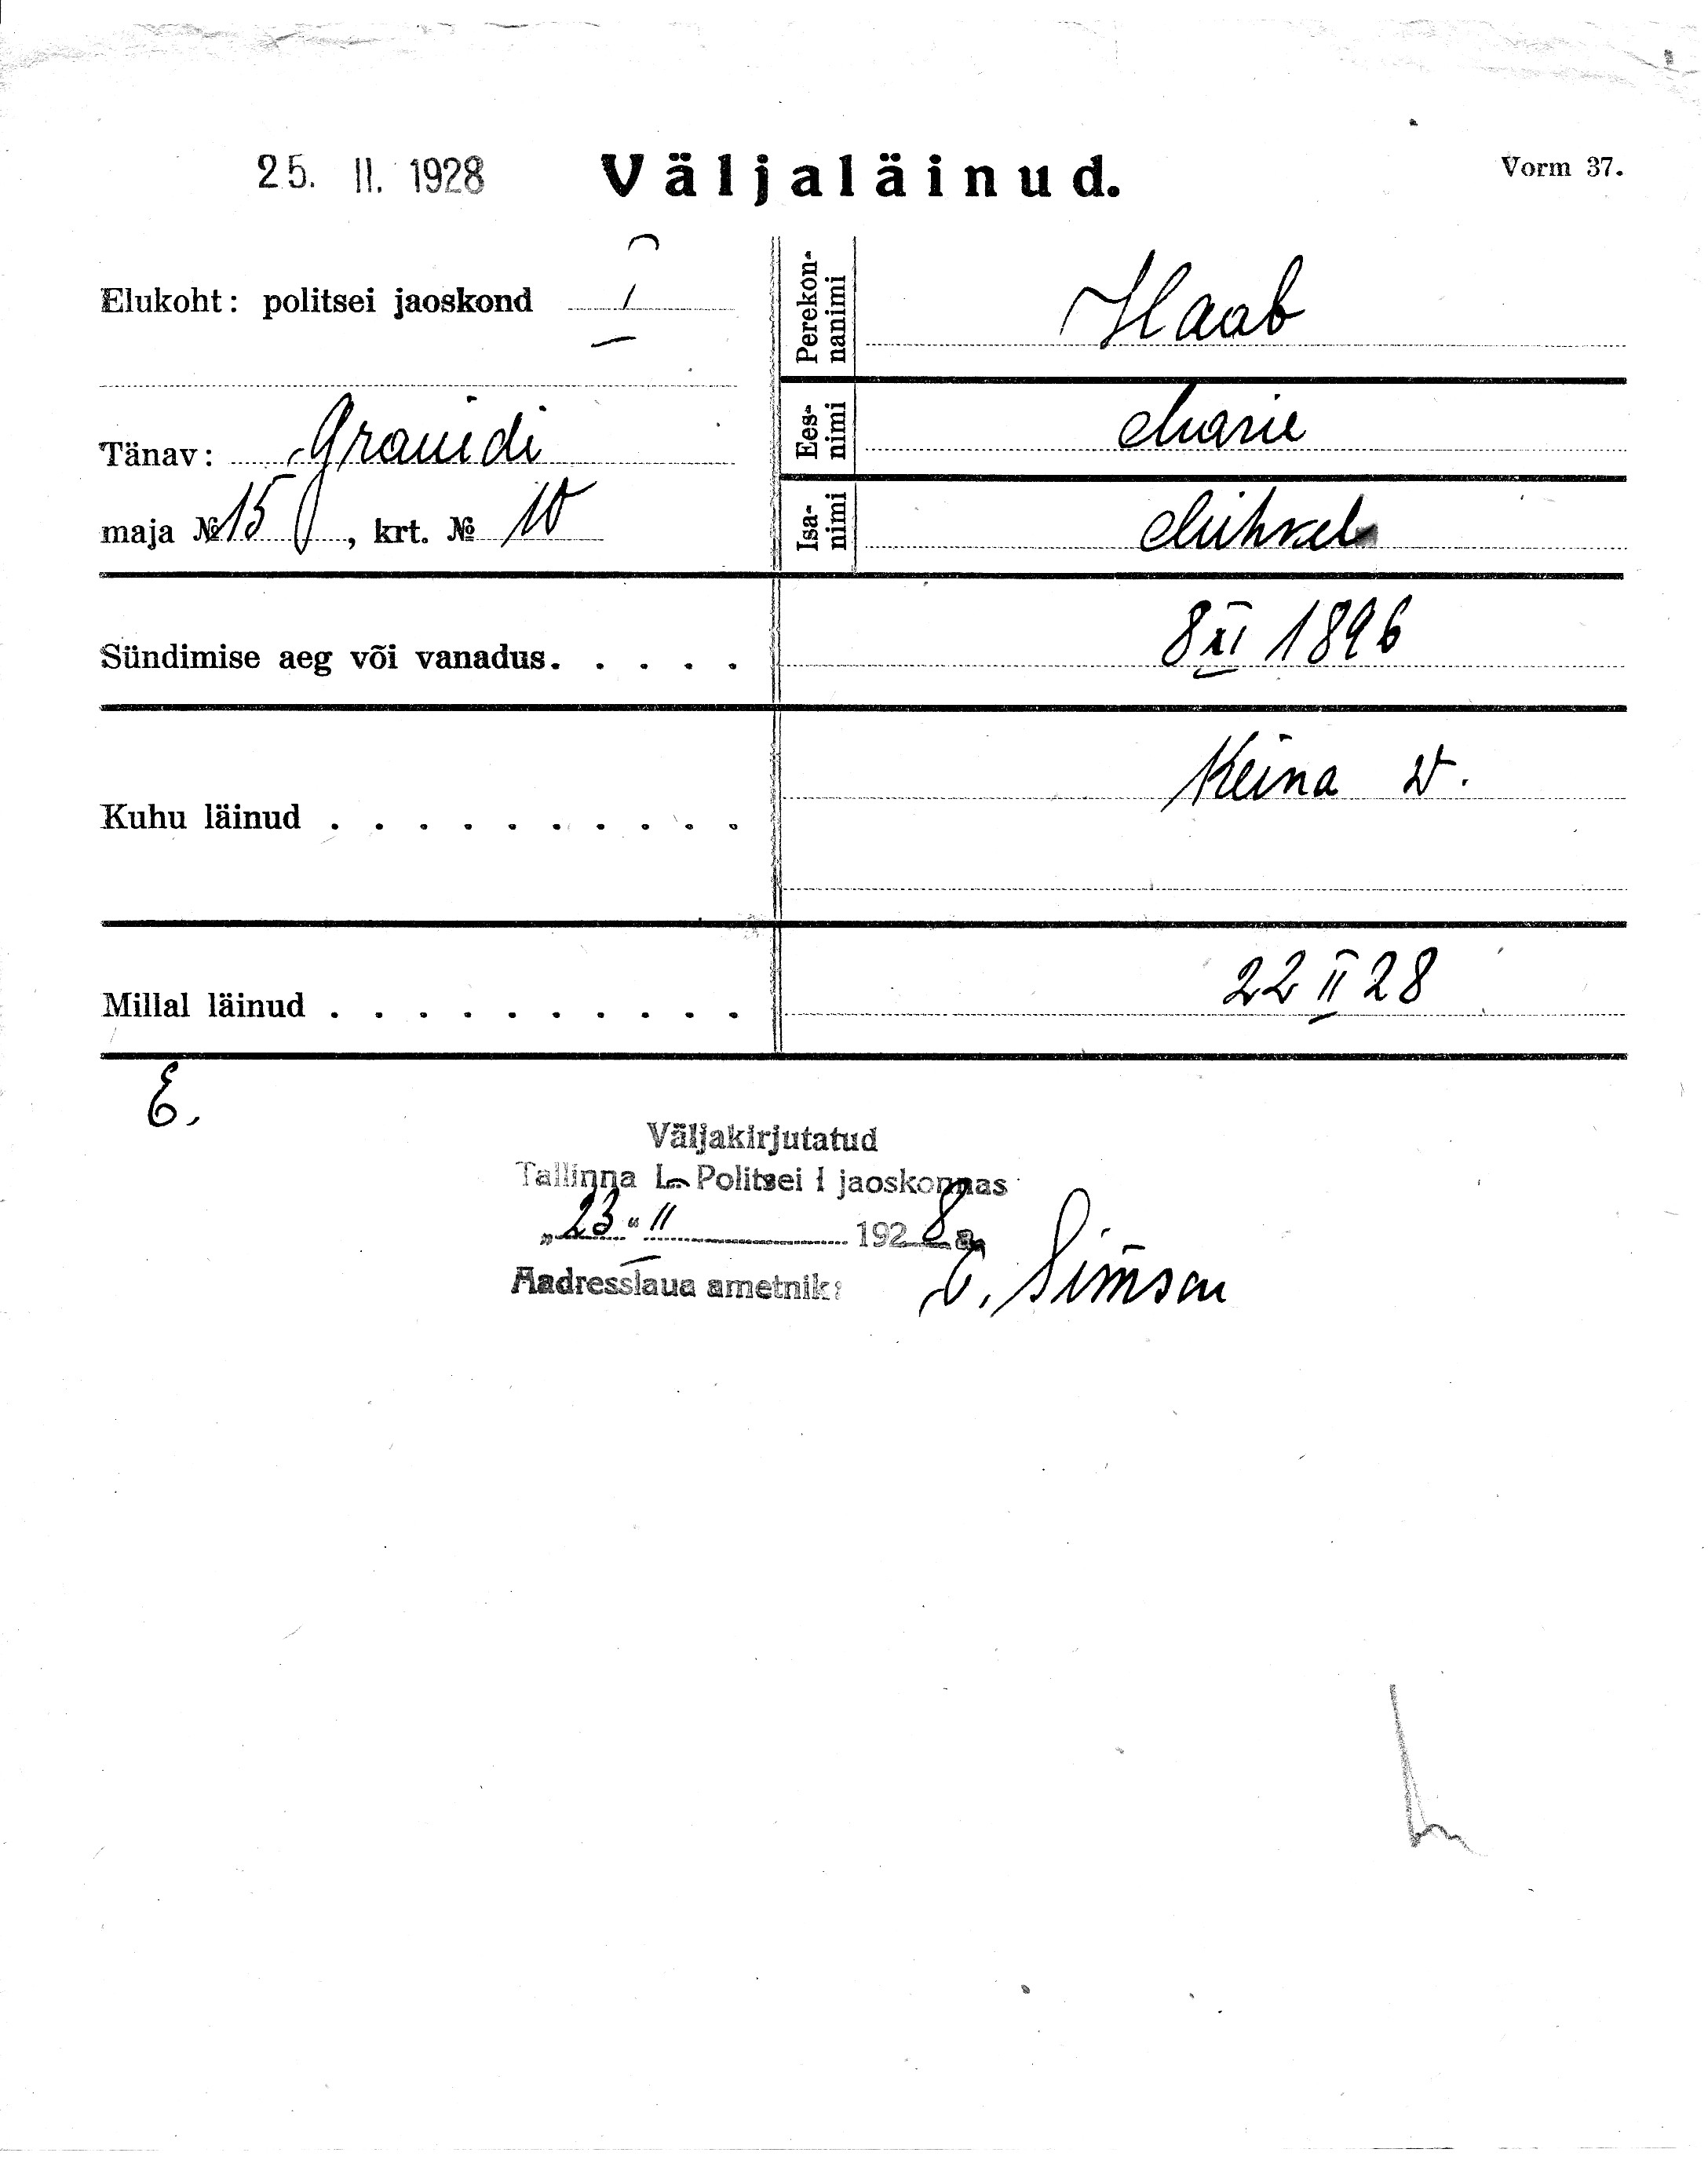 25. II. 1928 Väljaläinud. Vorm 37.
Elukoht: politsei jaoskond I
Tänav: Graniidi
maja № 15, krt. № 10
Perekonnanimi Haab
Eesnimi Marie
Isanimi Mihkel
Sündimise aeg või vanadus. . . . . 8 XI 1896
Kuhu läinud . . . . . . . . . . Keina v.
Millal läinud . . . . . . . . . . 22 II 28
E.
Väljakirjutatud
Tallinna L. Politsei I jaoskonnas
„23“ II 1928 a.
Aadresslaua ametnik: E. Simson